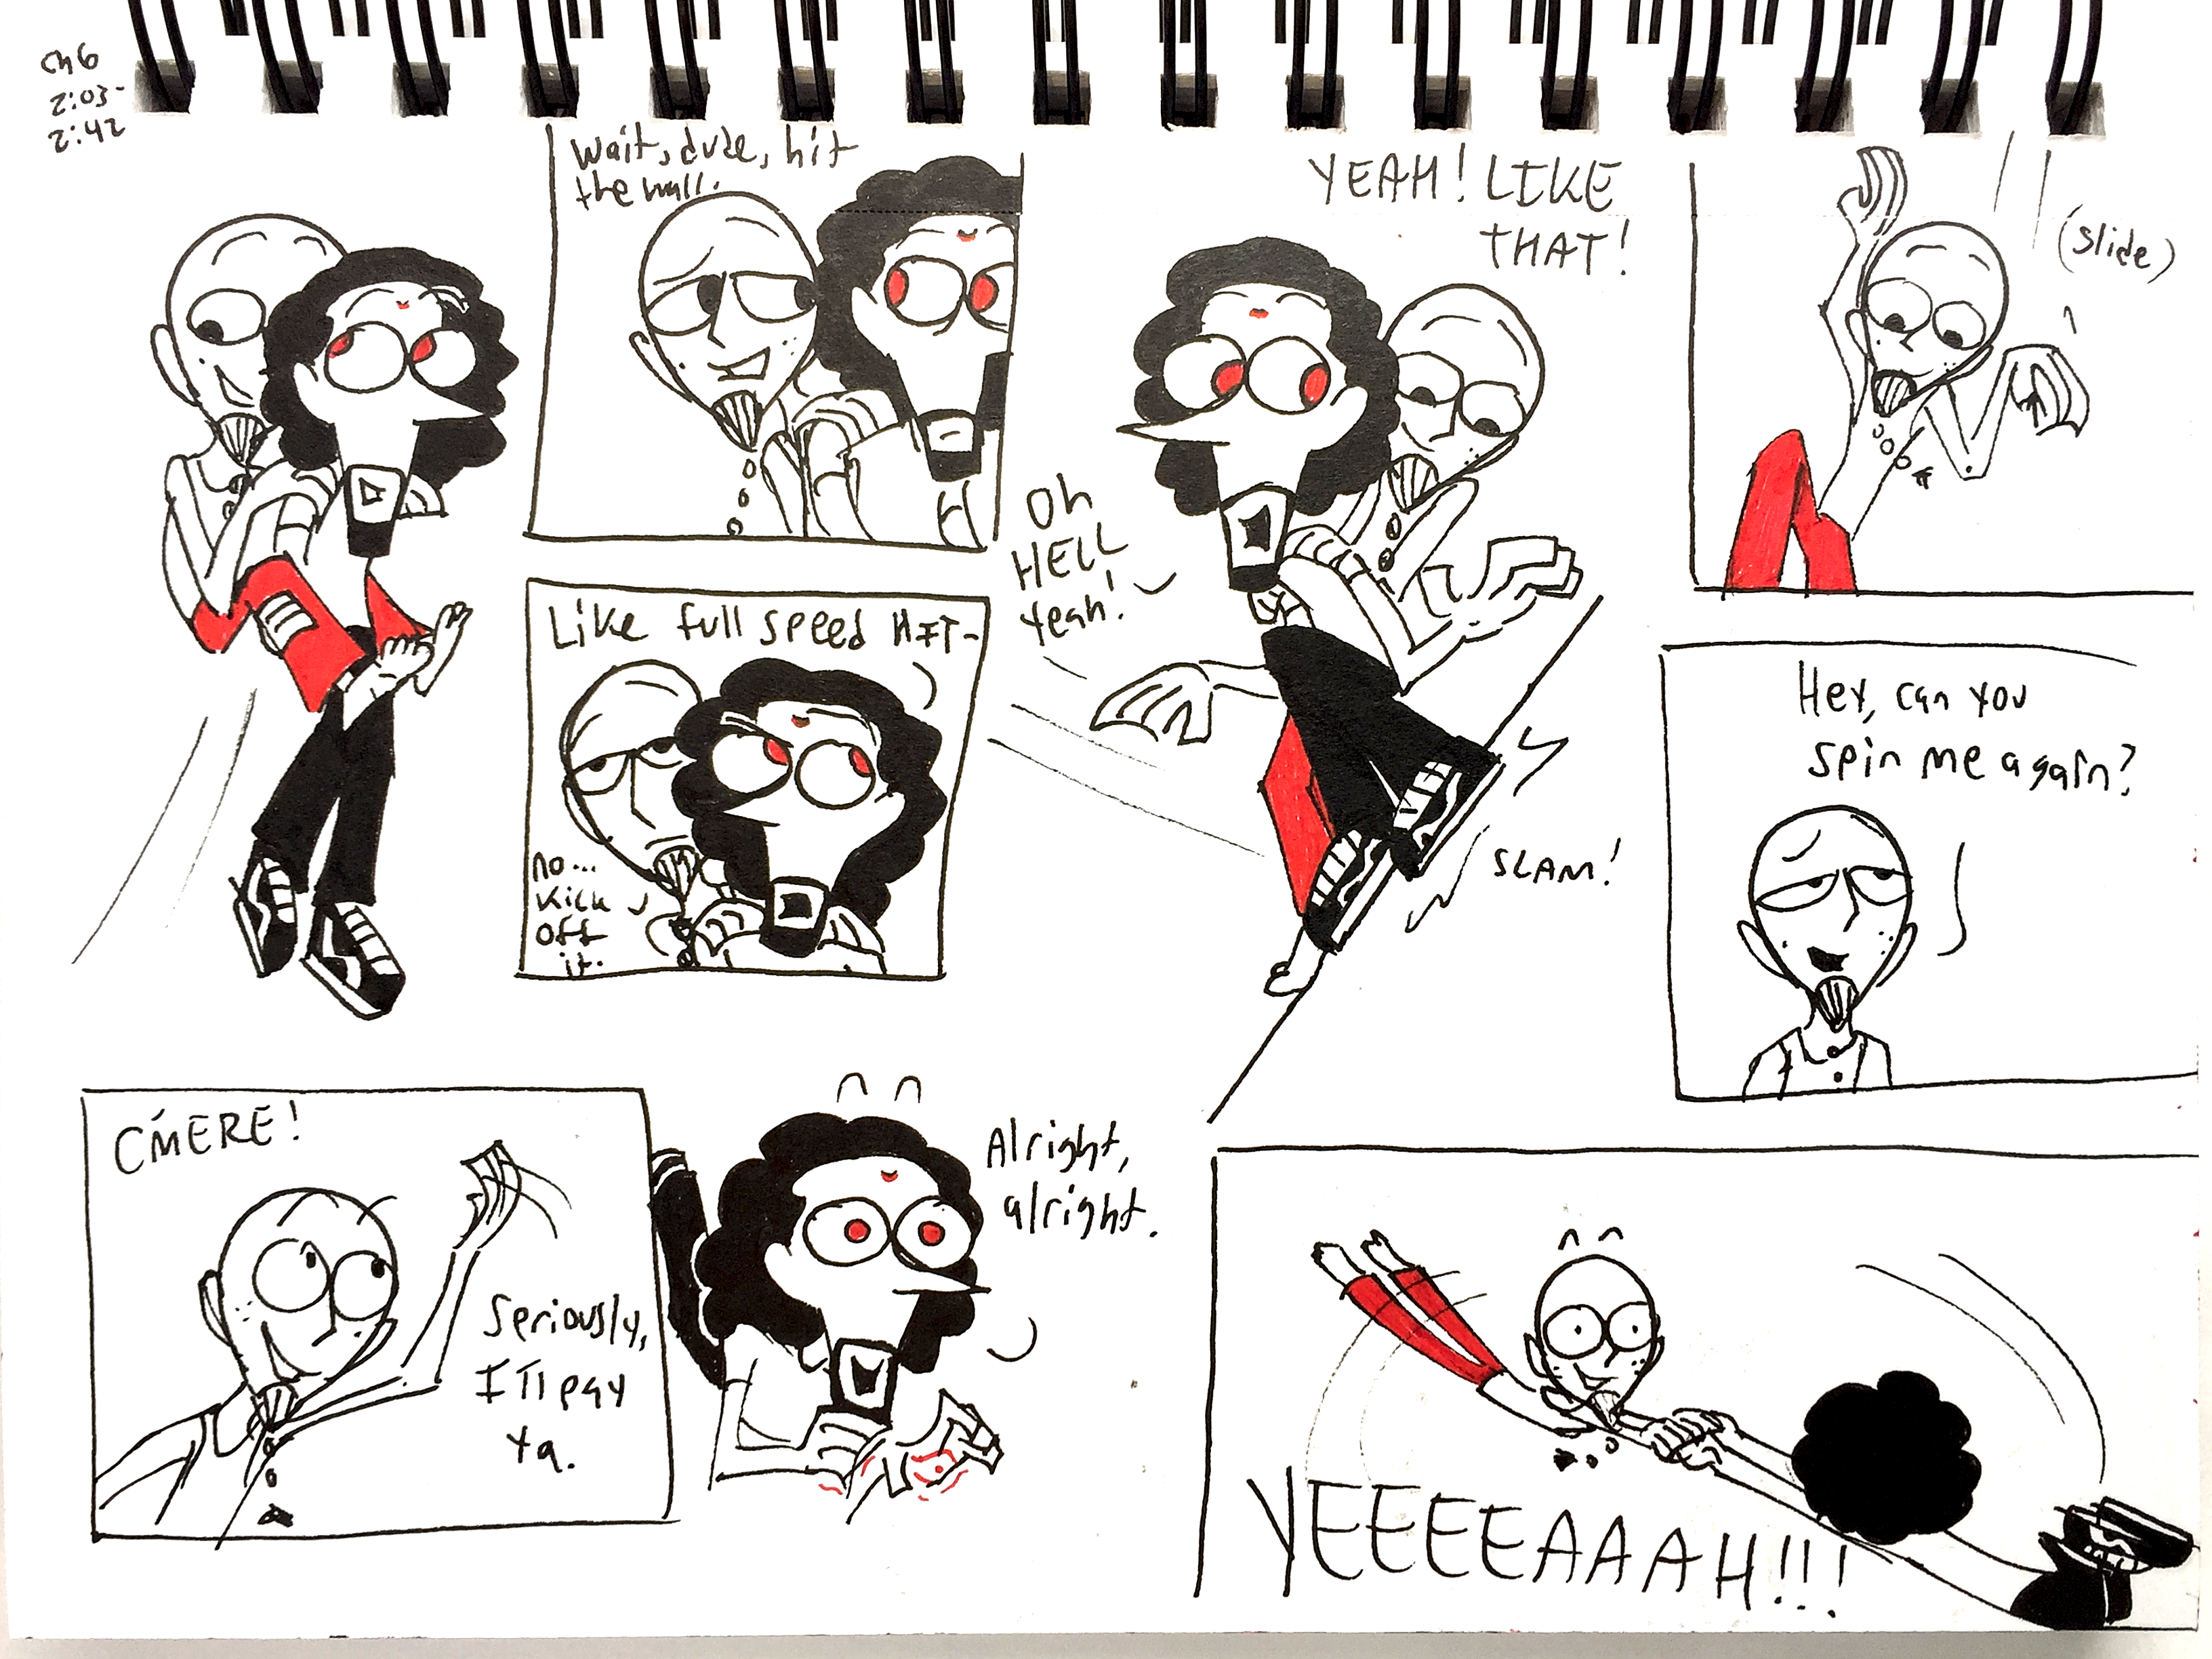 Ch 6
2:03-
2:42
Wait, dude, hit
the wall.
Like full speed HIT-
no...
Kick
off
it.
Oh
HELL
Yeah!
YEAH! LIKE
THAT!
SLAM!
(slide)
Hey, can you
spin me again?
C'MERE!
Seriously,
I'll pay
ya.
Alright,
alright.
YEEEEAAAAH!!!